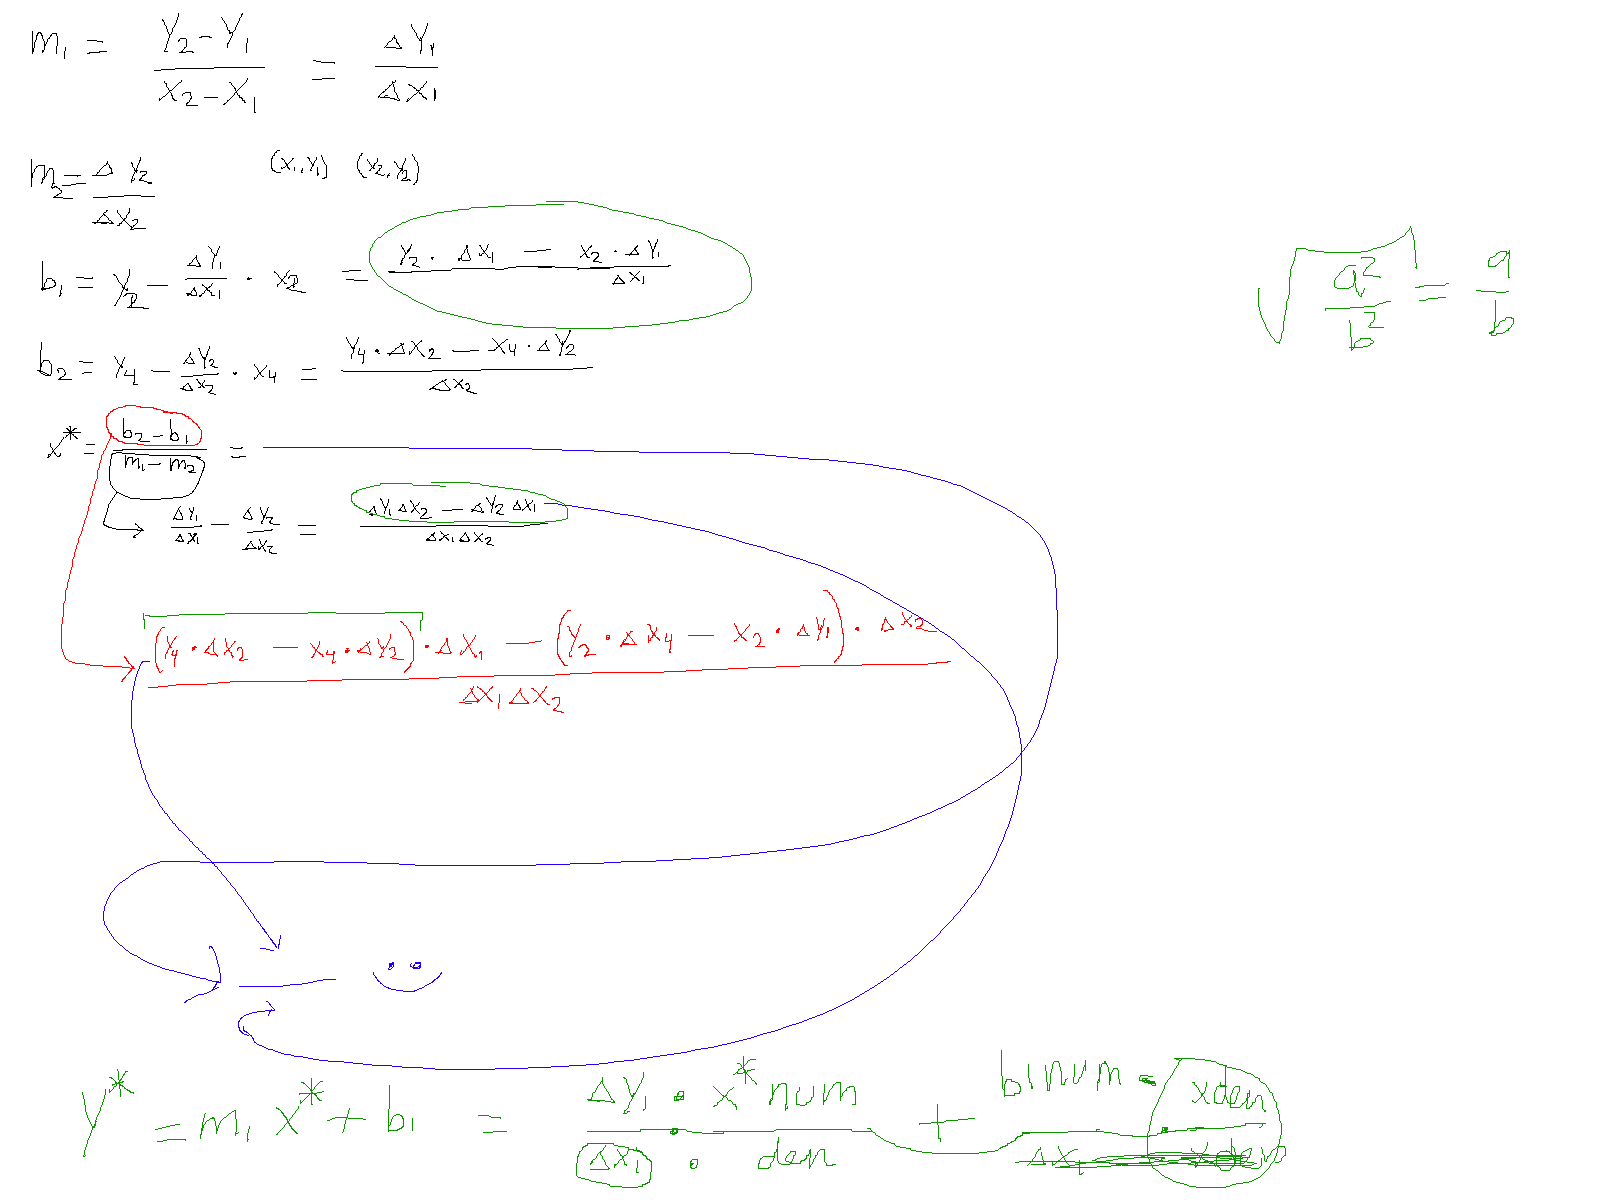 m₁ = (Y₂ - Y₁)/(X₂ - X₁) = ΔY₁/ΔX₁
m₂ = ΔY₂/ΔX₂ (x₁, Y₁) (x₂, Y₂)
b₁ = Y₂ - ΔY₁/ΔX₁ · x₂ = (Y₂ · ΔX₁ - x₂ · ΔY₁)/ΔX₁
√(a²/b²) = a/b
b₂ = Y₄ - ΔY₂/ΔX₂ · x₄ = (Y₄ · ΔX₂ - X₄ · ΔY₂)/ΔX₂
x* = (b₂ - b₁)/(m₁ - m₂) =
→ ΔY₁/ΔX₁ - ΔY₂/ΔX₂ = (ΔY₁ΔX₂ - ΔY₂ΔX₁)/(ΔX₁ΔX₂)
((Y₄ · ΔX₂ - X₄ · ΔY₂) · ΔX₁ - (Y₂ · ΔX₁ - X₂ · ΔY₁) · ΔX₂)/(ΔX₁ΔX₂)
Y* = m₁ x* + b₁ = (ΔY₁ · x* num)/(ΔX₁ · den) + b1num · xden